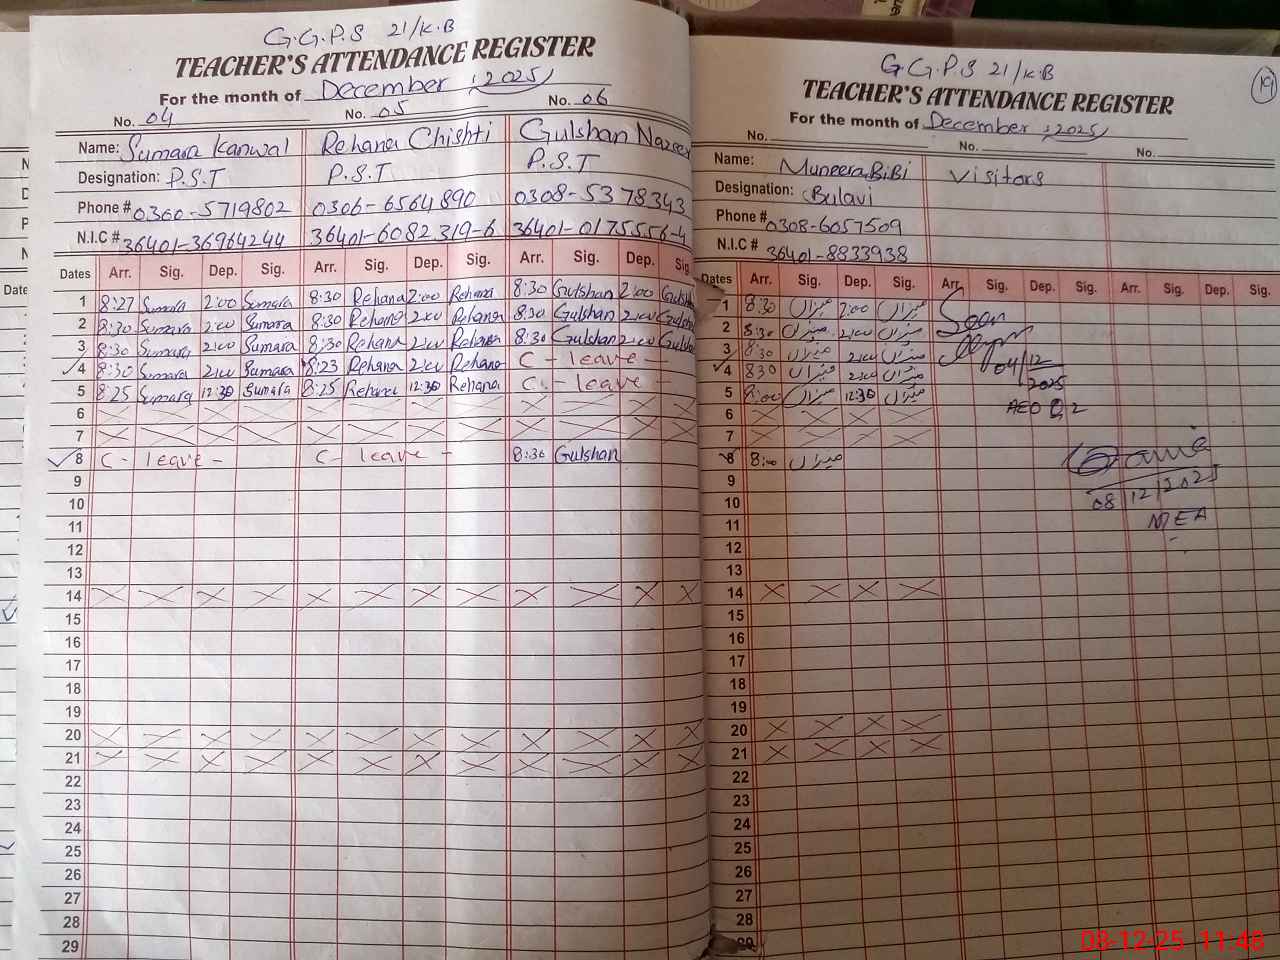 G.G.P.S 21/K.B
TEACHER'S ATTENDANCE REGISTER
For the month of December, 2025
No. 04 No. 05 No. 06
Name: Sumara Kanwal Rehana Chishti Gulshan Naseer
Designation: P.S.T P.S.T P.S.T
Phone # 0360-5719802 0306-6564890 0308-5378343
N.I.C # 36401-36964244 36401-6082319-6 36401-0175556-4
Dates Arr. Sig. Dep. Sig. Arr. Sig. Dep. Sig. Arr. Sig. Dep. Sig
1 8:27 Sumara 2:00 Sumara 8:30 Rehana 2:00 Rehana 8:30 Gulshan 2:00 Gulsh
2 8:30 Sumara 2:00 Sumara 8:30 Rehana 2:00 Rehana 8:30 Gulshan 2:00 Gulsh
3 8:30 Sumara 2:00 Sumara 8:30 Rehana 2:00 Rehana 8:30 Gulshan 2:00 Gulsh
4 8:30 Sumara 2:00 Sumara 8:23 Rehana 2:00 Rehana C - leave -
5 8:25 Sumara 12:30 Sumara 8:25 Rehana 12:30 Rehana C - leave -
6
7
8 C - leave - C - leave - 8:30 Gulshan
9
10
11
12
13
14
15
16
17
18
19
20
21
22
23
24
25
26
27
28
29
G.G.P.S 21/K.B
19
TEACHER'S ATTENDANCE REGISTER
For the month of December, 2025
No. No. No.
Name: Muneera BiBi Visitors
Designation: Bulavi
Phone # 0308-6057509
N.I.C # 36401-8833938
Dates Arr. Sig. Dep. Sig. Arr. Sig. Dep. Sig. Arr. Sig. Dep. Sig.
1 8:30 2:00 Seen
2 8:30 2:00
3 8:30 2:00 04/12
4 8:30 2:00 2025
5 8:00 12:30 AEO
6
7
8 8:00
9 08/12/2025
10
11 MEA
12
13
14
15
16
17
18
19
20
21
22
23
24
25
26
27
28
29
08-12-25 11:48